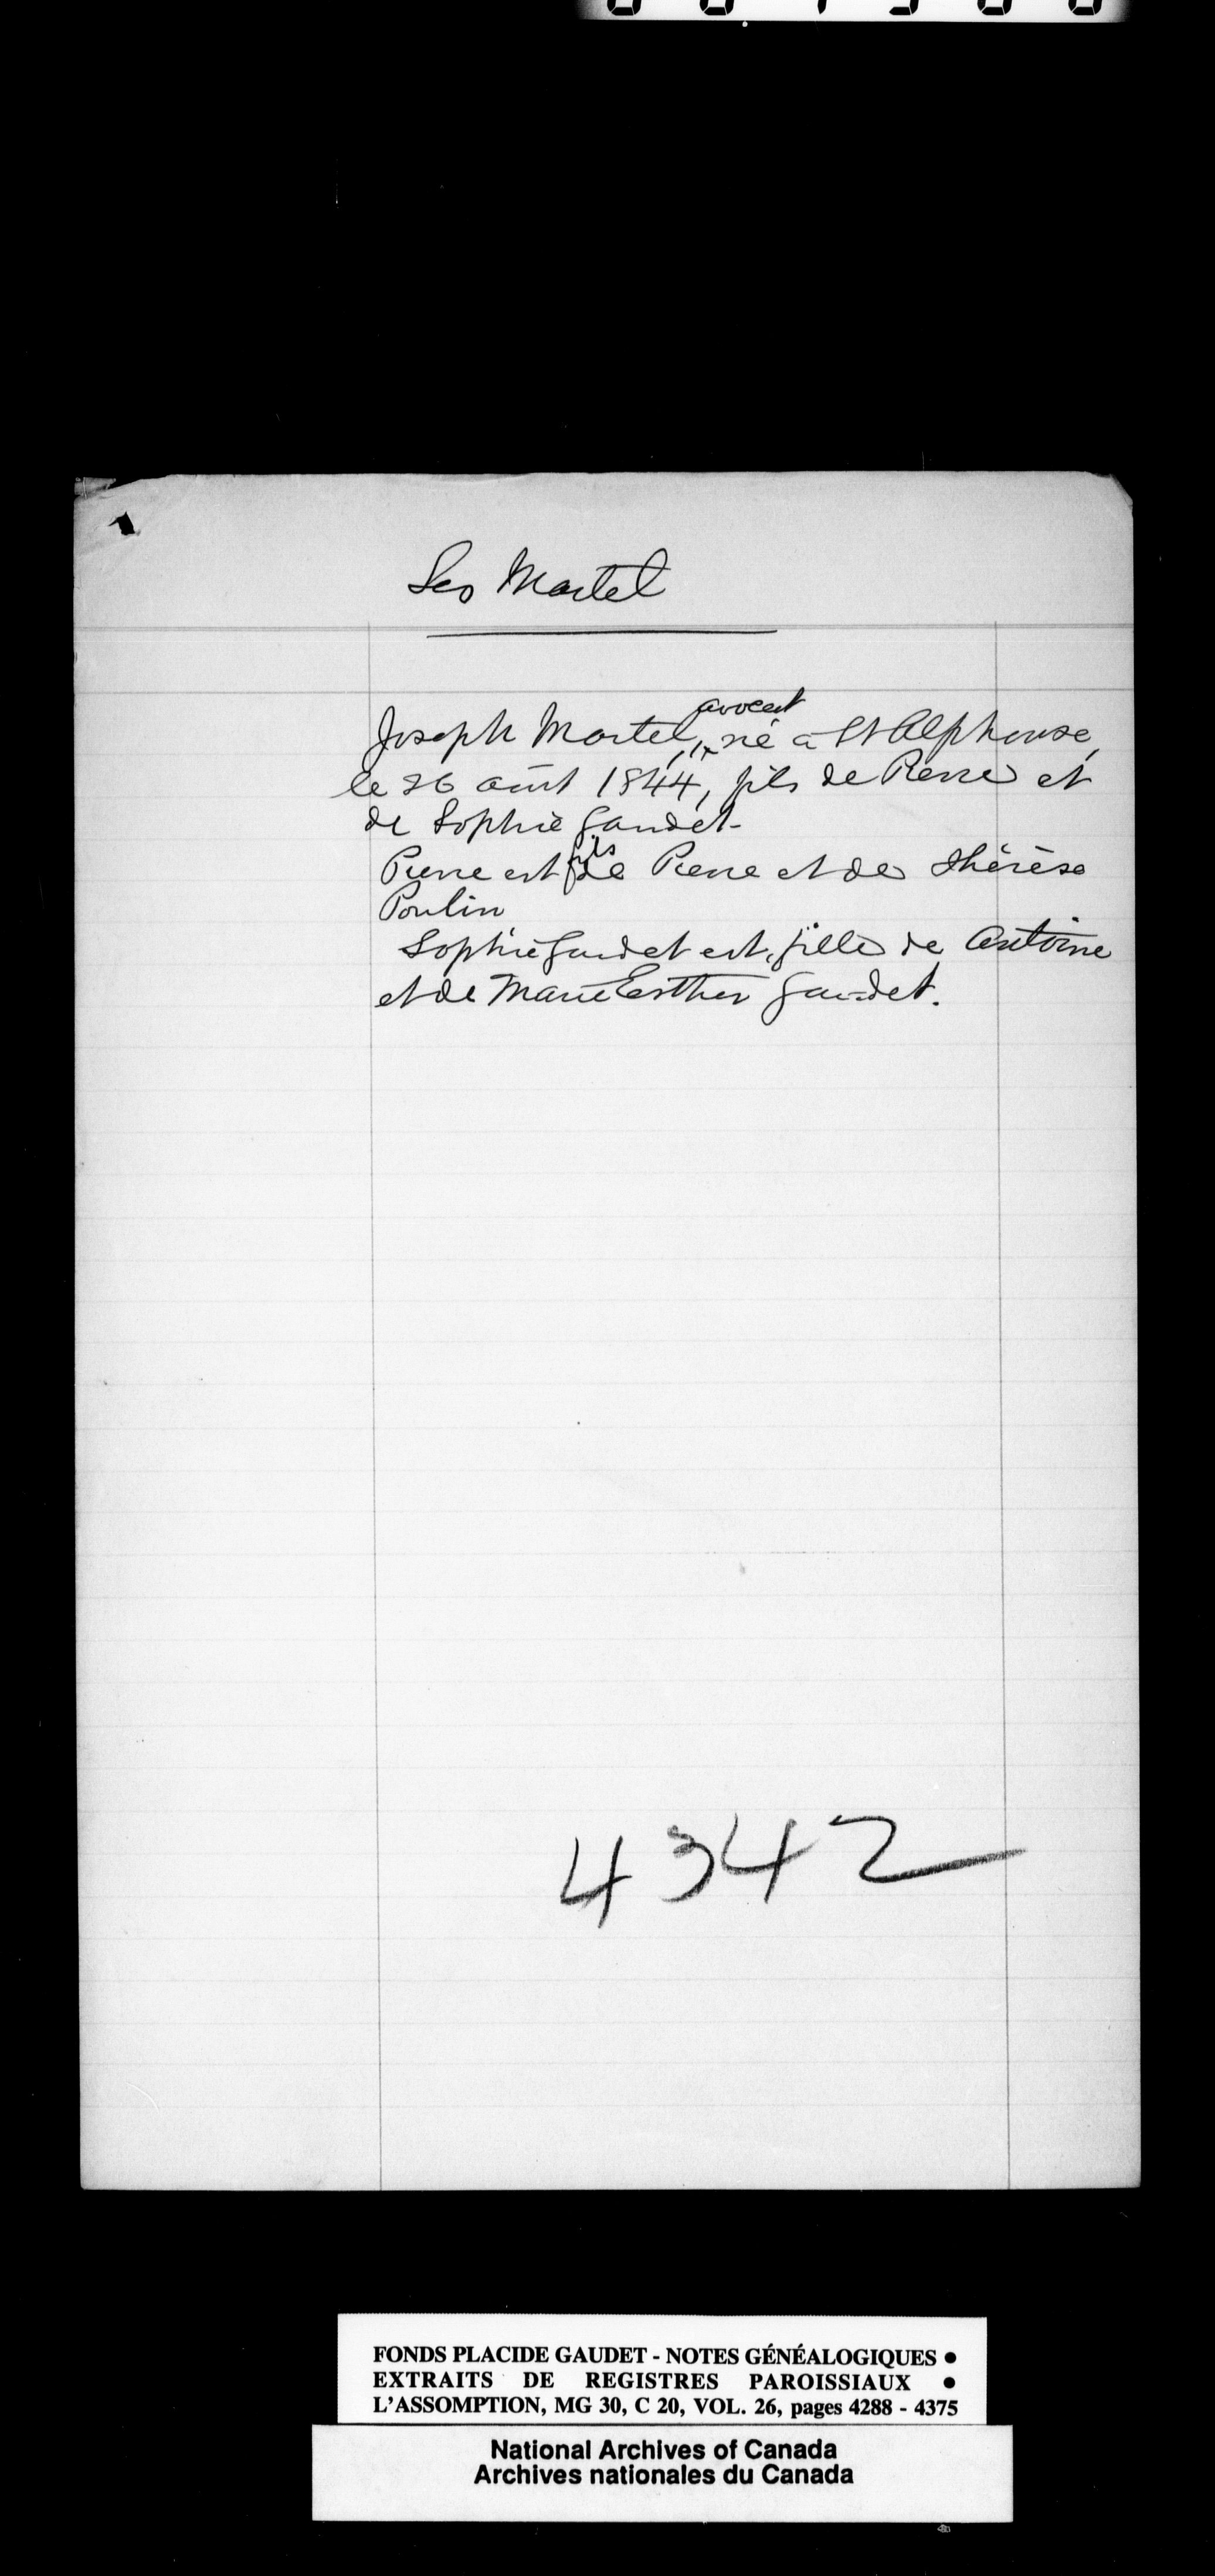 Les Martel
Joseph Martel, avocat, né à St Alphonse,
le 26 août 1844, fils de Pierre et
de Sophie Gaudet-
Pierre est fils de Pierre et de Thérèse
Poulin
Sophie Gaudet est fille de Antoine
et de Marie Esther Gaudet.
4342
FONDS PLACIDE GAUDET - NOTES GÉNÉALOGIQUES •
EXTRAITS DE REGISTRES PAROISSIAUX •
L'ASSOMPTION, MG 30, C 20, VOL. 26, pages 4288 - 4375
National Archives of Canada
Archives nationales du Canada